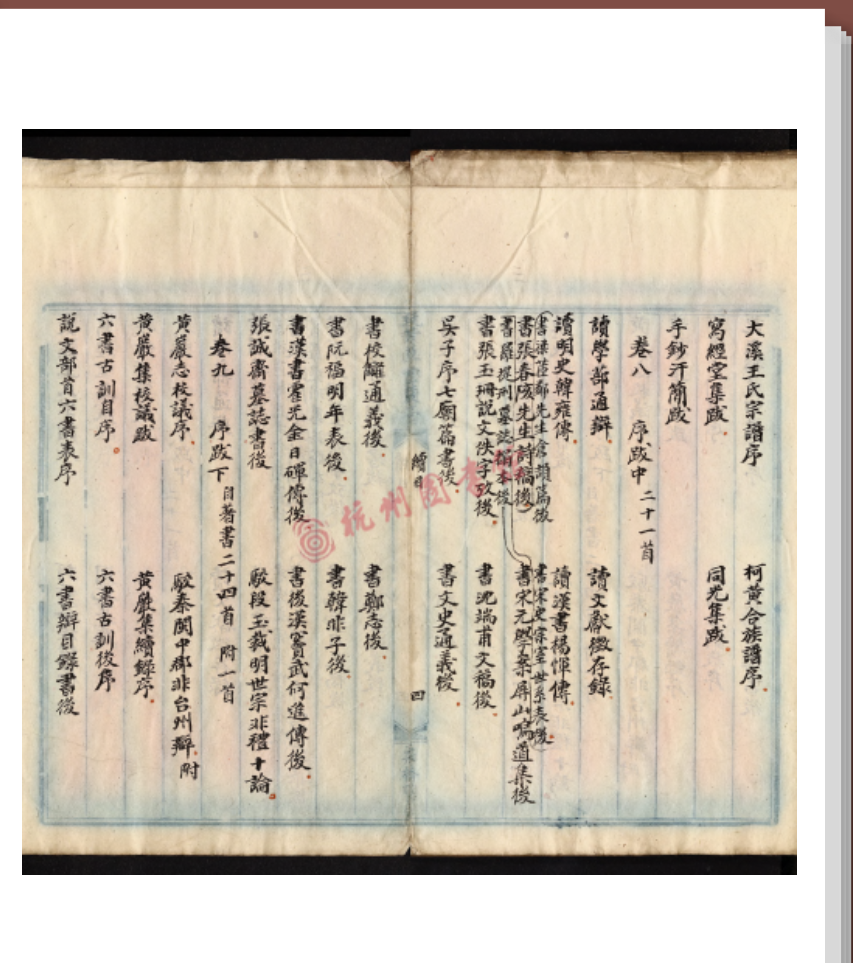 大溪王氏宗譜序 柯黃合族譜序
寫經堂集跋 同光集跋
手鈔汗簡跋
卷八 序跋中 二十一首
讀學蔀通辯 讀文獻徵存錄
讀明史韓雍傳 讀漢書楊惲傳
先生倉頡篇後 書宋史宗室世系表後
書張春陔先生詩稿後 書宋元學案屏山鳴道集後
書羅提刑墓誌搨本後
書張玉珊說文佚字攷後 書沈端甫文稿後
吳子序七廟篇書後 書文史通義後
續目
四
書校讎通義後 書鄭志後
書阮福明年表後 書韓非子後
書漢書霍光金日磾傳後 書後漢竇武何進傳後
張誠齋墓誌書後 駁段玉裁明世宗非禮十論
卷九 序跋下 自著書二十四首 附一首
黃巖志校議序 駁秦閩中郡非台州辯 附
黃巖集校議跋 黃巖集續錄序
六書古訓自序 六書古訓後序
說文部首六書表序 六書辯目錄書後
杭州圖書館